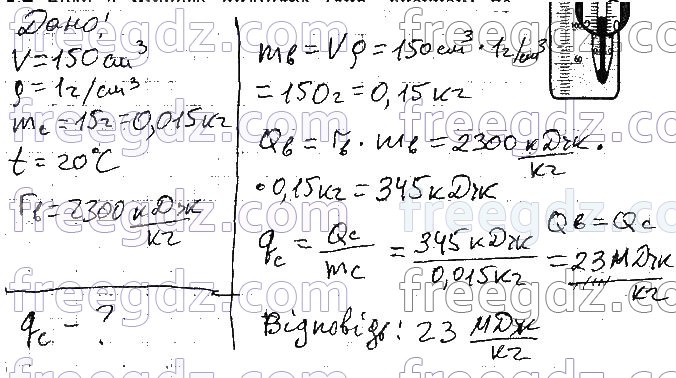 Дано:
V = 150 см³
ρ = 1г/см³
mс = 15г = 0,015кг
t = 20°C
rв = 2300 кДж/кг
qс - ?
mв = Vρ = 150 см³ · 1г/см³
= 150г = 0,15кг
Qв = rв · mв = 2300 кДж/кг ·
· 0,15кг = 345 кДж
Qв = Qс
qс = Qс/mс = 345 кДж/0,015кг = 23 МДж/кг
Відповідь: 23 МДж/кг
freegdz.com